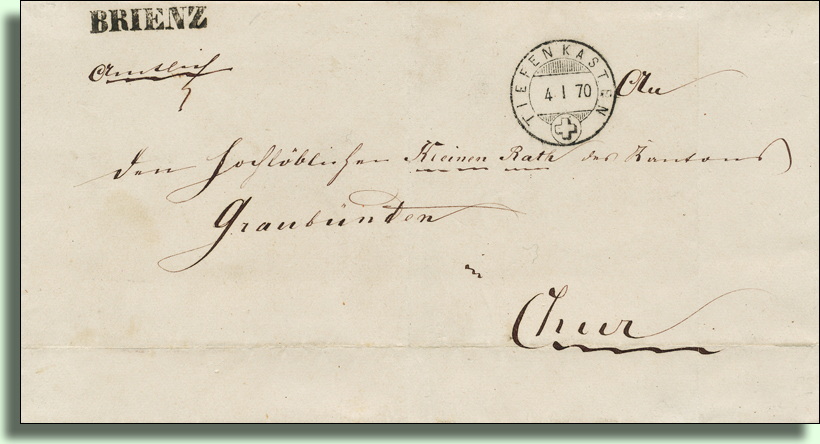 BRIENZ
Amtlich
TIEFENKASTEN
4 I 70
An
den hochlöblichen Kleinen Rath des Kantons
Graubünden
in
Chur